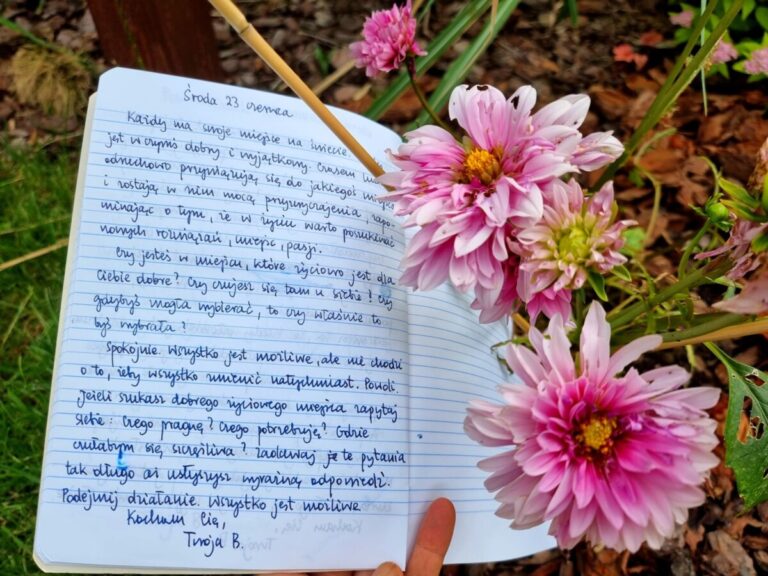 Środa 23 czerwca
Każdy ma swoje miejsce na świecie
jest w czymś dobry i wyjątkowy. Czasem
odruchowo przywiązują się do jakiegoś miejsca
i zostają w nim mocą przyzwyczajenia, zapo-
minając o tym, że w życiu warto poszukiwać
nowych rozwiązań, miejsc, pasji.
Czy jesteś w miejscu, które życiowo jest dla
Ciebie dobre? Czy czujesz się tam u siebie? Czy
gdybyś mogła wybierać, to czy właśnie to
byś wybrała?
Spokojnie. Wszystko jest możliwe, ale nie chodzi
o to, żeby wszystko zmienić natychmiast. Powoli.
Jeżeli szukasz dobrego życiowego miejsca zapytaj
siebie: Czego pragnę? Czego potrzebuję? Gdzie
czułabym się szczęśliwa? Zadawaj je te pytania
tak długo aż usłyszysz wyraźną odpowiedź.
Podejmij działanie. Wszystko jest możliwe.
Kocham Cię,
Twoja B.